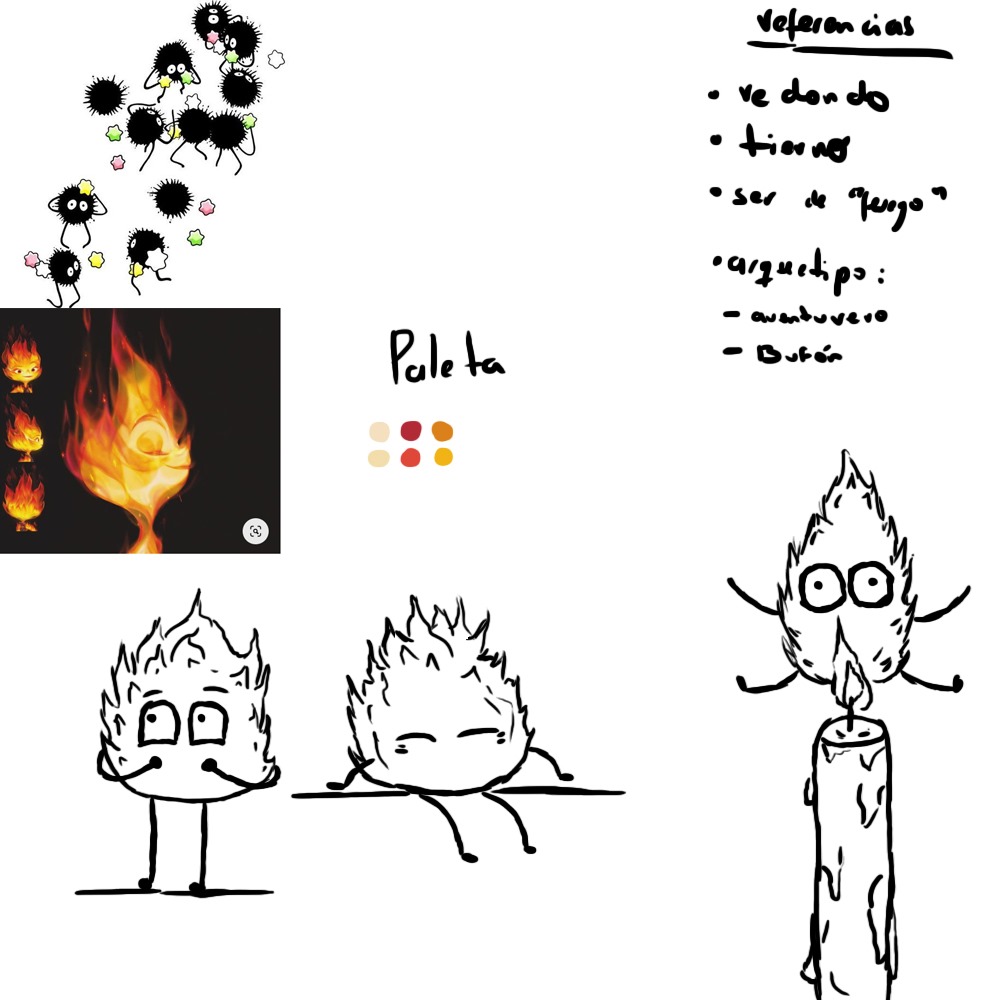 referencias
• redondo
• tierno
• ser de "fuego"
• arquetipo:
- aventurero
- Bufón
Paleta